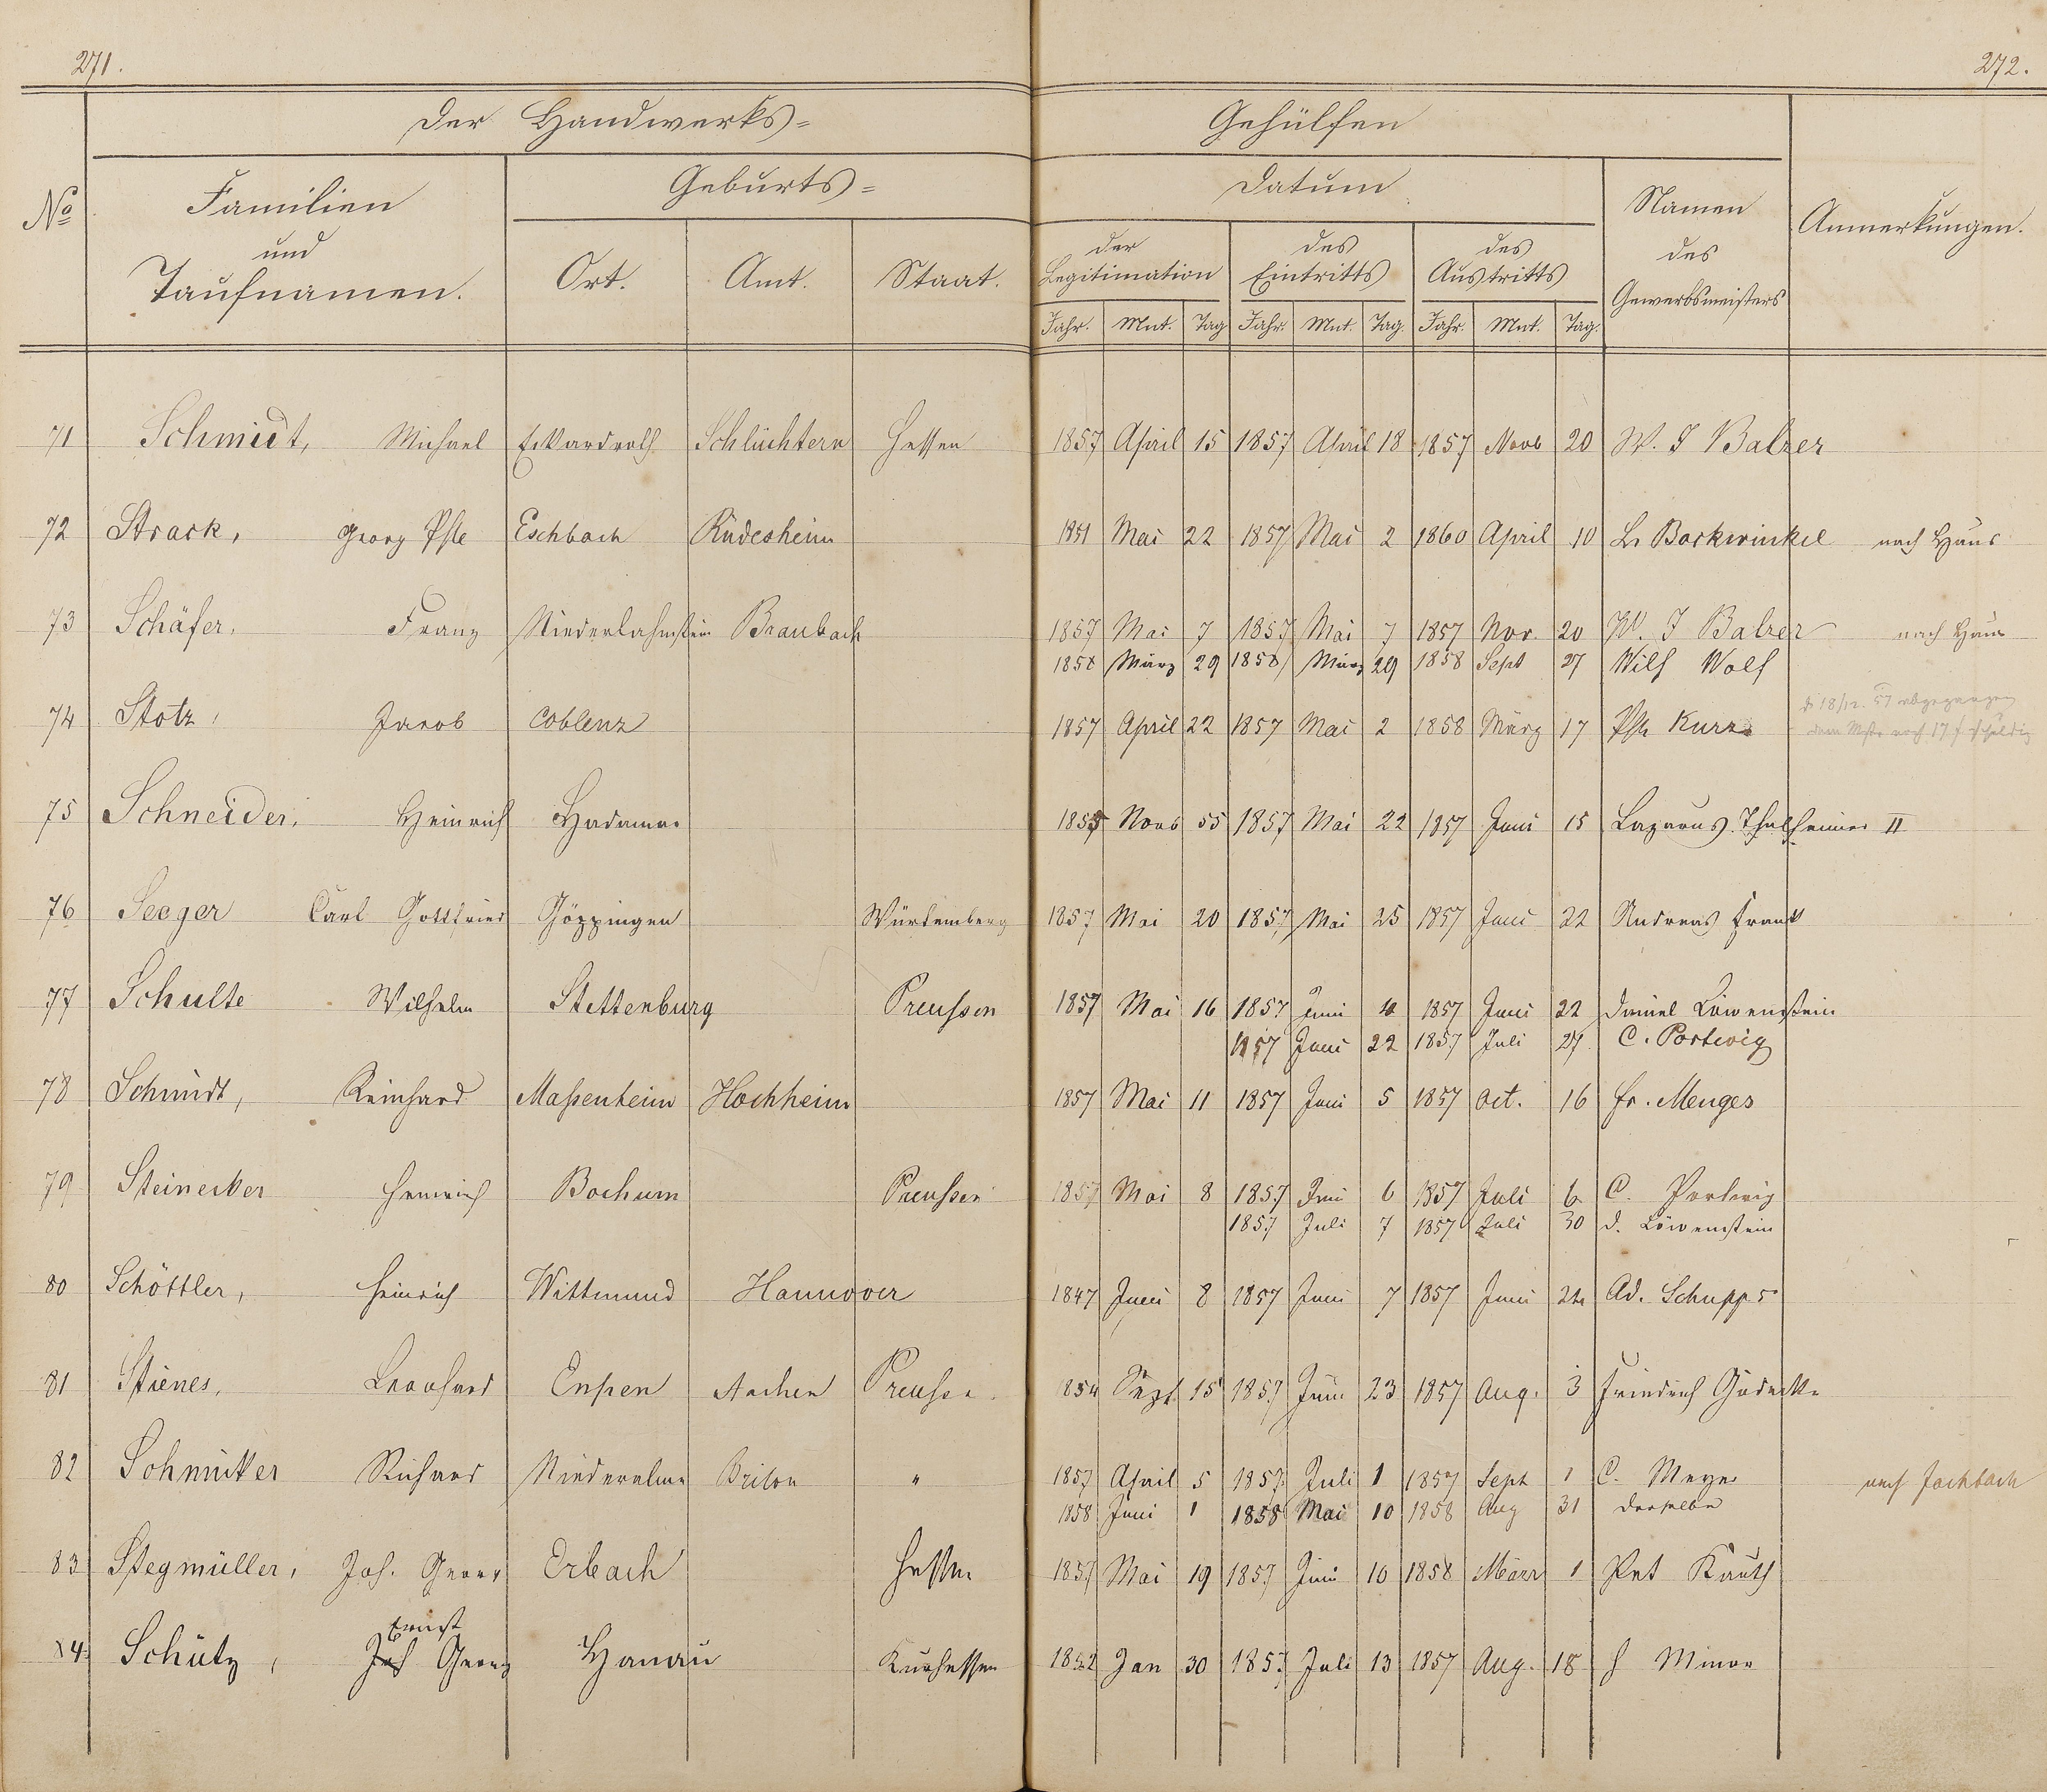 271.
272.
Der Handwerks=
Gehülfen
No
Familien
und
Taufnamen.
Geburts=
Ort.
Amt.
Staat.
Datum
der
Legitimation
des
Eintritts
des
Austritts
Jahr. Mnt. Tag Jahr. Mnt. Tag. Jahr. Mnt. Tag.
Namen
des
Gewerbsmeisters
Anmerkungen.
71 Schmidt, Michael Eckardroth Schlüchtern Hessen 1857 April 15 1857 April 18 1857 Novb 20 W. J Balzer
72 Strack, Georg Phle Eschbach Rüdesheim 1851 Mai 22 1857 Mai 2 1860 April 10 Bockwinkel nach Haus
73 Schäfer, Franz Niederlahnstein Braubach 1857 Mai 7 1857 Mai 7 1857 Nov. 20 W. J Balzer nach Haus
1858 März 29 1858 März 29 1858 Sept 27 Wilh Wolf
74 Stotz, Jacob Coblenz 1857 April 22 1857 Mai 2 1858 März 17 Kurz
d 18/12. 57 abgegangen
dem Mstr noch 17 f schuldig
75 Schneider, Heinrich Hadamar 1855 Novb 55 1857 Mai 22 1857 Juni 15 Lazarus Thalheimer II
76 Seeger Carl Gottfried Göppingen Würtemberg 1857 Mai 20 1857 Mai 25 1857 Juni 22 Andreas Frank
77 Schulte Wilhelm Stettenburg Preussen 1857 Mai 16 1857 Juni 1857 Juni 22 Daniel Löwenstein
1857 Juni 22 1857 Juli 27 C. Portwig
78 Schmidt, Reinhard Massenheim Hochheim 1857 Mai 11 1857 Juni 5 1857 Oct. 16 Fr. Menges
79 Steinecker Heinrich Bochum Preussen 1857 Mai 8 1857 Juni 6 1857 Juli 6 C. Portwig
1857 Juli 7 1857 Juli 30 D. Löwenstein
80 Schöttler, Heinrich Wittmund Hannover 1847 Juni 8 1857 Juni 7 1857 Juni 24 Ad. Schupp
81 Stienes, Leonhard Eupen Aachen Preussen. 1854 Sept 15 1857 Juni 23 1857 Aug. 3 Friedrich Gödecke
82 Schmücker Richard Brilon " 1857 April 5 1857 Juli 1 1857 Sept 1 C. Meyer nach
1858 Juni 1 1858 Mai 10 1858 Aug 31 derselbe
83 Stegmüller, Joh. Georg Erbach Hessen 1857 Mai 19 1857 Juni 10 1858 März 1 Pet Kauth
Ernst
84 Schütz, Joh Georg Hanau Kurhessen 1852 Jan 30 1857 Juli 13 1857 Aug. 18 H Minor